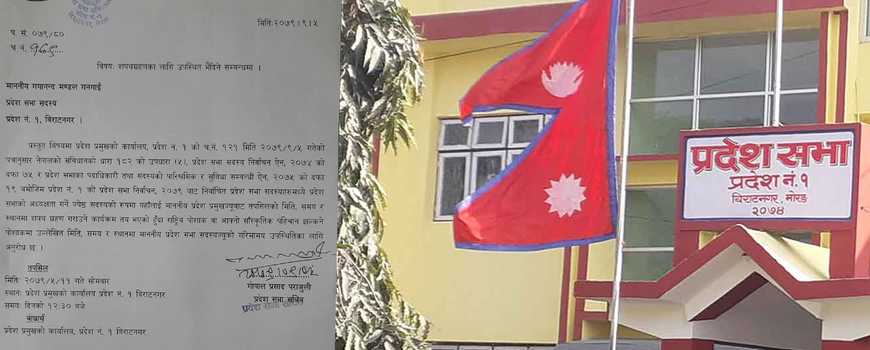 मिति:२०७९।९।५
प. सं. ०७९/८०
च नं. १६९
विषय: शपथग्रहणका लागि उपस्थित भैदिने सम्बन्धमा ।
माननीय गयानन्द मण्डल गनगाई
प्रदेश सभा सदस्य
प्रदेश नं. १, बिराटनगर ।
प्रस्तुत विषयमा प्रदेश प्रमुखको कार्यालय, प्रदेश नं. १ को च.नं. १२१ मिति २०७९/९/५ गतेको
पत्रानुसार नेपालको संविधानको धारा १८२ को उपधारा (५), प्रदेश सभा सदस्य निर्वाचन ऐन, २०७४ को
दफा ७५ र प्रदेश सभाका पदाधिकारी तथा सदस्यको पारिश्रमिक र सुविधा सम्बन्धी ऐन, २०७५ को दफा
१९ बमोजिम प्रदेश नं. १ को प्रदेश सभा निर्वाचन, २०७९ बाट निर्वाचित प्रदेश सभा सदस्यहरुमध्ये प्रदेश
सभाको अध्यक्षता गर्ने ज्येष्ठ सदस्यको रुपमा यहाँलाई माननीय प्रदेश प्रमुखज्यूबाट तपसिलको मिति, समय र
स्थानमा शपथ ग्रहण गराउने कार्यक्रम तय भएको हुँदा राष्ट्रिय पोशाक वा आफ्नो साँस्कृतिक पहिचान झल्कने
पोशाकमा उल्लेखित मिति, समय र स्थानमा माननीय प्रदेश सभा सदस्यज्यूको गरिमामय उपस्थितिका लागि
अनुरोध छ ।
तपसिल
मिति: २०७९/९/११ गते सोमबार
स्थान: प्रदेश प्रमुखको कार्यालय प्रदेश नं. १ बिराटनगर
समय: दिनको १२:३० बजे
बोधार्थ
प्रदेश प्रमुखको कार्यालय, प्रदेश नं. १ बिराटनगर
गोपाल प्रसाद पराजुली
प्रदेश सभा सचिव
प्रदेश सभा सचिव
प्रदेश सभा
प्रदेश नं. १
बिराटनगर, मोरङ
२०७४